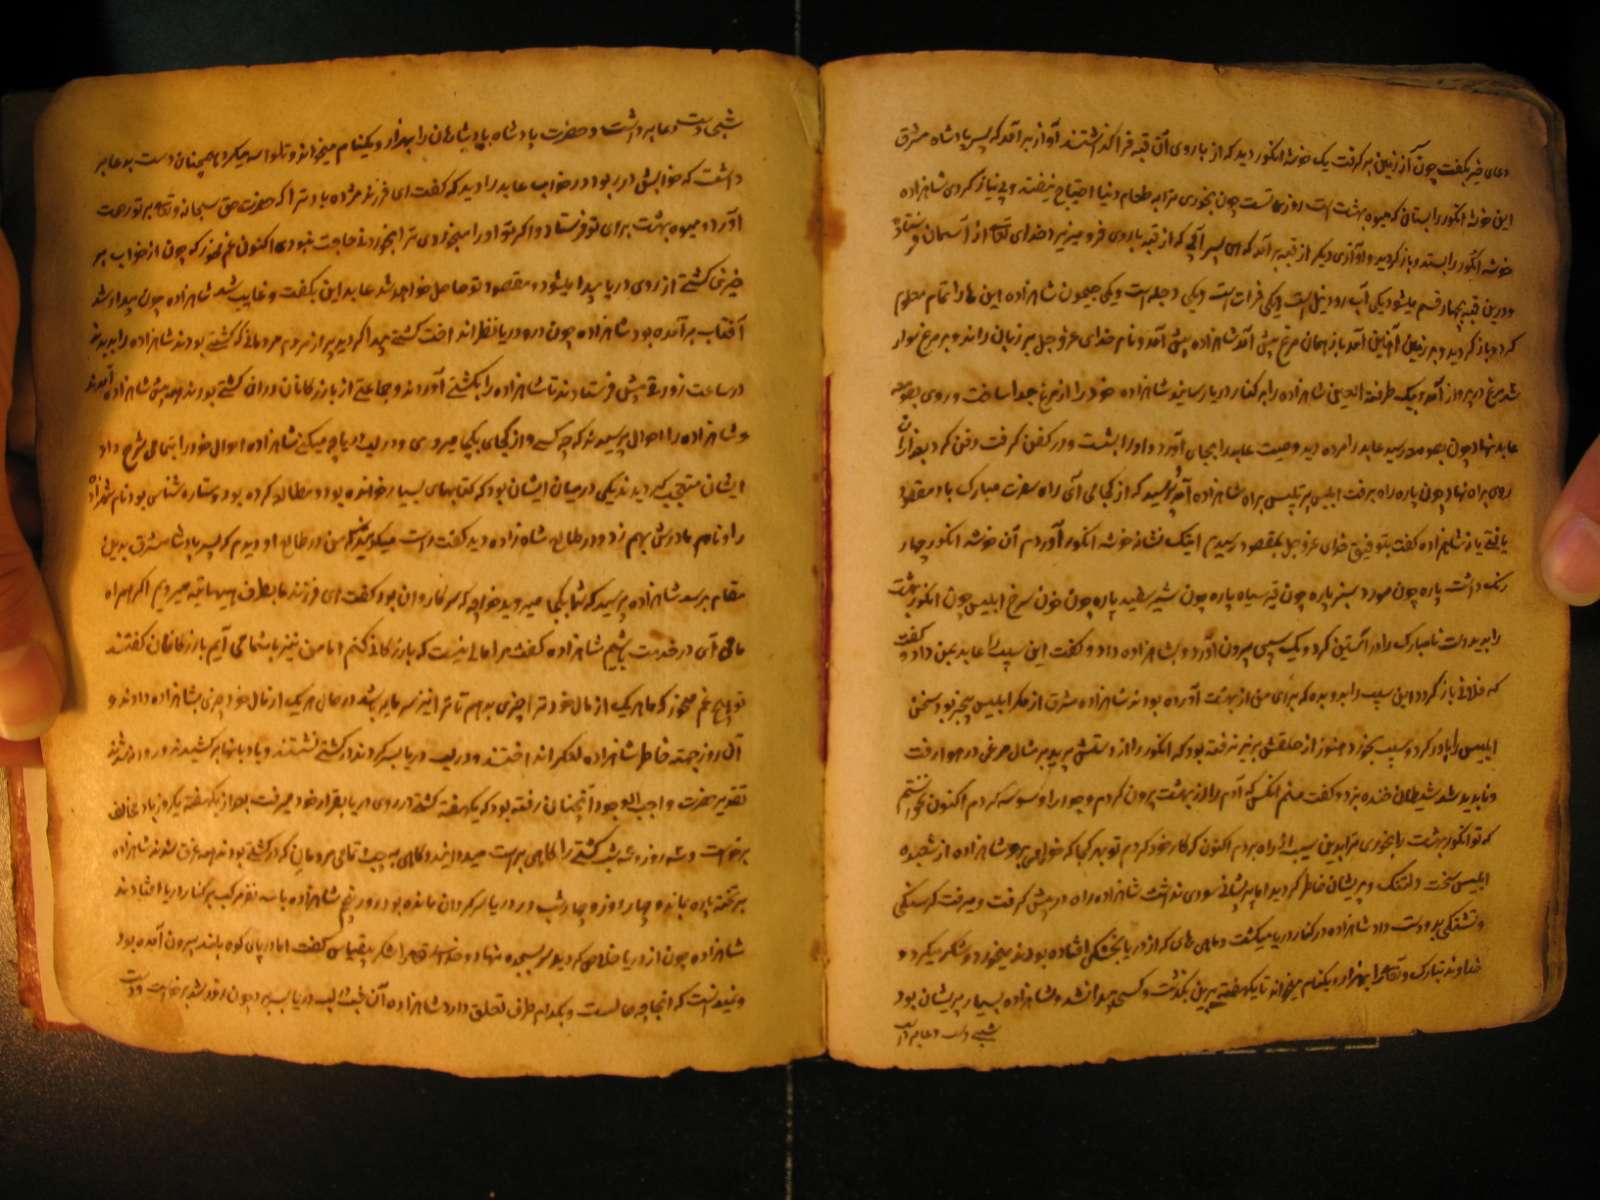 دعای خیر بگفت چون آن از زمین برگرفت یک خوشهٔ انگور دید که از باروی آن قبه فرا گذاشتند آواز برآمد که ای پسر پادشاه مشرق
این خوشهٔ انگور را بستان که میوه بهشت است روزی تست چون بخوری ترا به طعام دنیا احتیاج نیفتد و بی نیاز گردی شاهزاده
خوشه انگور را بستد و باز گردید و آوازی دیگر از قبه برآمد که ای پسر آبی که از قبه باروی فرو میریزد خدای تعالی از آسمان فرستاده
و درین قبه چهار قسم میشود یکی آب رود نیل است و یکی فرات است و یکی دجله است و یکی جیحون شاهزاده این ها را تمام معلوم
کرد و باز گردید و بر زمین آهنین آمد باز همان مرغ پیش آمد شاهزاده پیش آمد و نام خدای عز و جل بر زبان راند و بر مرغ سوار
شد مرغ در پرواز آمد و بیک طرفة العین شاهزاده را بر کنار دریا رسانید شاهزاده خود را از مرغ جدا ساخت و روی بصومعه
عابد نهاد چون بصومعه رسید عابد را مرده دید وصیت عابد را بجای آورد و او را بشست و در کفن گرفت و دفن کرد بعد از آن
روی براه نهاد چون پاره راه برفت ابلیس پر تلبیس براه شاهزاده آمد و پرسید که از کجا می آی راه سفرت مبارک باد مقصود
یافتی یا نه شاهزاده گفت بتوفیق خدای عز و جل بمقصود رسیدم اینک نشانه خوشه انگور آوردم آن خوشه انگور چهار
رنگ داشت پاره چون مورد سبز پاره چون قیر سیاه پاره چون شیر سفید پاره چون خون سرخ ابلیس چون انگور بهشت
را بدید دست نامبارک را در آستین کرد و یک سیبی بیرون آورد و بشاهزاده داد و گفت این سیب را عابد بمن داد و گفت
که فلانی باز گردد این سیب را بدو بده که برای من از بهشت آورده بودند شاهزاده مشرق از مکر ابلیس بیخبر بود سخن
ابلیس را باور کرد و سیب بخورد هنوز از حلقش بزیر نرفته بود که انگور را از دستش پرید بر مثال مرغی در هوا رفت
و ناپدید شد شیطان خنده بزد و گفت منم آنکس که آدم را از بهشت بیرون کردم و حوا را وسوسه کردم اکنون نخواستم
که تو انگور بهشت را بخوری ترا بدین سیب از راه بردم اکنون که کار خود کردم تو بهر کجا که خواهی برو شاهزاده از شعبده
ابلیس سخت دلتنگ و پریشان خاطر گردید اما پریشانی سودی نداشت شاهزاده راه در پیش گرفت و میرفت گرسنگی
و تشنگی بدو دست داد شاهزاده در کنار دریا میگشت و ماهی های که از دریا بخشکی افتاده بودند میخورد و شکر میکرد و
خداوند تبارک و تعالی را بهزار و یکنام میخواند تا یکهفته برین بگذشت و کسی پیدا نشد شاهزاده بسیار پریشان بود
شبی دست دعا بر داشت
شبی دست دعا بر داشت و حضرت پادشاه پادشاهان را بهزار و یکنام میخواند و تلواسه میکرد تا همچنان دست بدعا بر
داشت که خوابش در ربود در خواب عابد را دید که گفت ای فرزند مژده باد ترا که حضرت حق سبحانه و تعالی بر تو رحمت
آورد و میوه بهشت برای تو فرستاد و اگر تو او را میخوردی ترا بخوردنی حاجت نبودی اکنون غم مخور که چون از خواب بر
خیزی کشتی از روی دریا پیدا میشود و مقصود تو حاصل خواهد شد عابد این بگفت و غایب شد شاهزاده چون بیدار شد
آفتاب برآمده بود شاهزاده چون در دریا نظر انداخت کشتی پیدا گردید پر از مردم مردمانی که در کشتی بودند شاهزاده را بدیدند
در ساعت زورقی پیش فرستادند تا شاهزاده را بکشتی آوردند و جماعتی از بازرگانان در آن کشتی بودند همه پیش شاهزاده آمدند
و شاهزاده را احوال پرسیدند که چه کسی و از کجای بکجا میروی و در لب دریا چه میکنی شاهزاده احوال خود را بتمامی شرح داد
ایشان متعجب گردیدند یکی در میان ایشان بود که کتابهای بسیار خوانده بود و مطالعه کرده بود و ستاره شناس بود نام شهزاده
را و نام مادرش بهم زد و در طالع شاهزاده دید گفت راست میگوید که من در طالع او دیدم که پسر پادشاه مشرق بدین
مقام برسد شاهزاده پرسید که شما بکجا میروید خواجه که سر کاروان بود گفت ای فرزند ما بطرف میروم اگر همراه
ما می آی در خدمت باشیم شاهزاده گفت مرا مالی نیست که بازرگانی کنم اما من نیز با شما می آیم بازرگانان گفتند
تو هیچ غم مخور که ما هر یک از مال خود ترا چیزی بدهیم تا ترا نیز سرمایه باشد در حال هر یک از مال خود چیزی بشاهزاده دادند و
آن روز جهت خاطر شاهزاده لنگر انداختند و در لب دریا بسر کردند در کشتی نشستند و بادبانها بر کشیدند و روانه شدند
تقدیر حضرت واجب الوجود آنچنان رفته بود که یکهفته کشتی در روی دریا بقرار خود میرفت بعد از یکهفته یکروز باد مخالف
برخواست و سه روز و سه شب کشتی را گاهی براست میدوانید و گاهی بچپ تمامی مردمان که در کشتی بودند همه غرق شدند شاهزاده
بر تخته پاره بماند و چهار روز و چهار شب در دریا سر گردان مانده بود روز پنجم شاهزاده با سه نفر مرکب بر کنار دریا افتادند
شاهزاده چون از دریا خلاص گردید سر بسجده نهاد و خدا را شکر بیقیاس گفت اما در پای کوه بلند بیرون آمده بود
و نمیدانست که آنجا چه جا است و بکدام طرف تعلق دارد شاهزاده آن شب در لب دریا بسر برد چون روز شد برخاست و دست